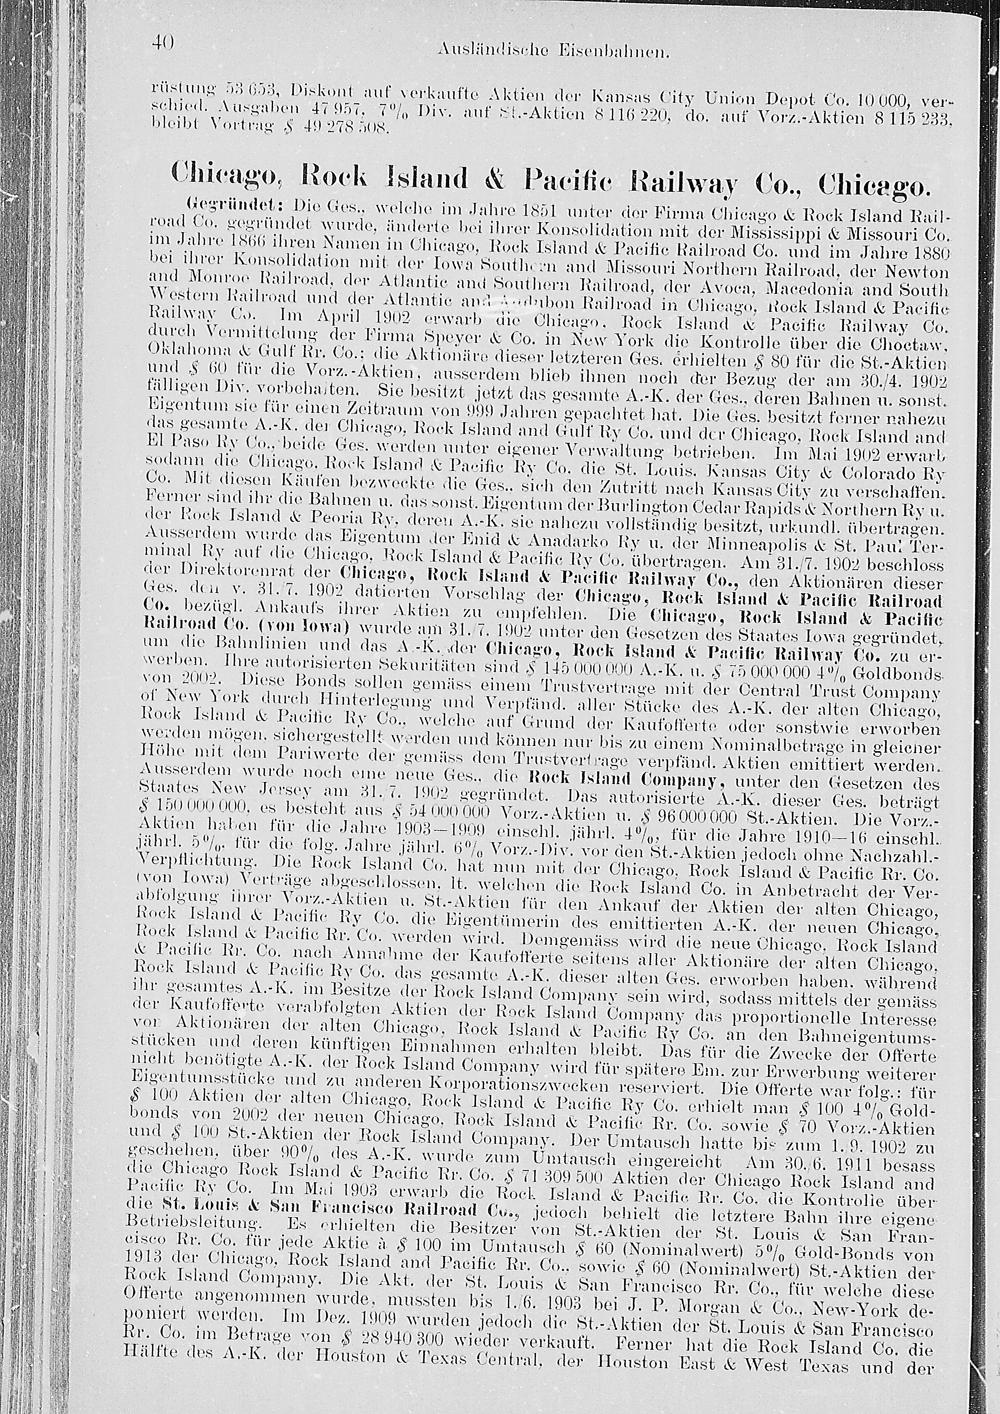 40
Ausländische Eisenbahnen.
rüstung 53 653, Diskont auf verkaufte Aktien der Kansas City Union Depot Co. 10 000, ver-
schied. Ausgaben 47 957, 7% Div. auf St.-Aktien 8 116 220, do. auf Vorz.-Aktien 8 115 233,
bleibt Vortrag $ 49 278 508.
Chicago, Rock Island & Pacific Railway Co., Chicago.
Gegründet: Die Ges., welche im Jahre 1851 unter der Firma Chicago & Rock Island Rail-
road Co. gegründet wurde, änderte bei ihrer Konsolidation mit der Mississippi & Missouri Co.
im Jahre 1866 ihren Namen in Chicago, Rock Island & Pacific Railroad Co. und im Jahre 1880
bei ihrer Konsolidation mit der Iowa Southern and Missouri Northern Railroad, der Newton
and Monroe Railroad, der Atlantic and Southern Railroad, der Avoca, Macedonia and South
Western Railroad und der Atlantic and Audubon Railroad in Chicago, Rock Island & Pacific
Railway Co. Im April 1902 erwarb die Chicago, Rock Island & Pacific Railway Co.
durch Vermittelung der Firma Speyer & Co. in New York die Kontrolle über die Choctaw,
Oklahoma & Gulf Rr. Co.; die Aktionäre dieser letzteren Ges. erhielten $ 80 für die St.-Aktien
und $ 60 für die Vorz.-Aktien, ausserdem blieb ihnen noch der Bezug der am 30./4. 1902
fälligen Div. vorbehalten. Sie besitzt jetzt das gesamte A.-K. der Ges., deren Bahnen u. sonst.
Eigentum sie für einen Zeitraum von 999 Jahren gepachtet hat. Die Ges. besitzt ferner nahezu
das gesamte A.-K. der Chicago, Rock Island and Gulf Ry Co. und der Chicago, Rock Island and
El Paso Ry Co., beide Ges. werden unter eigener Verwaltung betrieben. Im Mai 1902 erwarb
sodann die Chicago, Rock Island & Pacific Ry Co. die St. Louis, Kansas City & Colorado Ry
Co. Mit diesen Käufen bezweckte die Ges., sich den Zutritt nach Kansas City zu verschaffen.
Ferner sind ihr die Bahnen u. das sonst. Eigentum der Burlington Cedar Rapids & Northern Ry u.
der Rock Island & Peoria Ry, deren A.-K. sie nahezu vollständig besitzt, urkundl. übertragen.
Ausserdem wurde das Eigentum der Enid & Anadarko Ry u. der Minneapolis & St. Paul Ter-
minal Ry auf die Chicago, Rock Island & Pacific Ry Co. übertragen. Am 31./7. 1902 beschloss
der Direktorenrat der Chicago, Rock Island & Pacific Railway Co., den Aktionären dieser
Ges. den v. 31./7. 1902 datierten Vorschlag der Chicago, Rock Island & Pacific Railroad
Co. bezügl. Ankaufs ihrer Aktien zu empfehlen. Die Chicago, Rock Island & Pacific
Railroad Co. (von Iowa) wurde am 31./7. 1902 unter den Gesetzen des Staates Iowa gegründet,
um die Bahnlinien und das A.-K. der Chicago, Rock Island & Pacific Railway Co. zu er-
werben. Ihre autorisierten Sekuritäten sind $ 145 000 000 A.-K. u. $ 75 000 000 4% Goldbonds
von 2002. Diese Bonds sollen gemäss einem Trustvertrage mit der Central Trust Company
of New York durch Hinterlegung und Verpfänd. aller Stücke des A.-K. der alten Chicago,
Rock Island & Pacific Ry Co., welche auf Grund der Kaufofferte oder sonstwie erworben
werden mögen, sichergestellt werden und können nur bis zu einem Nominalbetrage in gleicher
Höhe mit dem Pariwerte der gemäss dem Trustvertrage verpfänd. Aktien emittiert werden.
Ausserdem wurde noch eine neue Ges., die Rock Island Company, unter den Gesetzen des
Staates New Jersey am 31./7. 1902 gegründet. Das autorisierte A.-K. dieser Ges. beträgt
$ 150 000 000, es besteht aus $ 54 000 000 Vorz.-Aktien u. $ 96 000 000 St.-Aktien. Die Vorz.-
Aktien haben für die Jahre 1903—1909 einschl. jährl. 4%, für die Jahre 1910—16 einschl.
jährl. 5%, für die folg. Jahre jährl. 6% Vorz.-Div. vor den St.-Aktien jedoch ohne Nachzahl.-
Verpflichtung. Die Rock Island Co. hat nun mit der Chicago, Rock Island & Pacific Rr. Co.
(von Iowa) Verträge abgeschlossen, lt. welchen die Rock Island Co. in Anbetracht der Ver-
abfolgung ihrer Vorz.-Aktien u. St.-Aktien für den Ankauf der Aktien der alten Chicago,
Rock Island & Pacific Ry Co. die Eigentümerin des emittierten A.-K. der neuen Chicago,
Rock Island & Pacific Rr. Co. werden wird. Demgemäss wird die neue Chicago, Rock Island
& Pacific Rr. Co. nach Annahme der Kaufofferte seitens aller Aktionäre der alten Chicago,
Rock Island & Pacific Ry Co. das gesamte A.-K. dieser alten Ges. erworben haben, während
ihr gesamtes A.-K. im Besitze der Rock Island Company sein wird, sodass mittels der gemäss
der Kaufofferte verabfolgten Aktien der Rock Island Company das proportionelle Interesse
von Aktionären der alten Chicago, Rock Island & Pacific Ry Co. an den Bahneigentums-
stücken und deren künftigen Einnahmen erhalten bleibt. Das für die Zwecke der Offerte
nicht benötigte A.-K. der Rock Island Company wird für spätere Em. zur Erwerbung weiterer
Eigentumsstücke und zu anderen Korporationszwecken reserviert. Die Offerte war folg.: für
$ 100 Aktien der alten Chicago, Rock Island & Pacific Ry Co. erhielt man $ 100 4% Gold-
bonds von 2002 der neuen Chicago, Rock Island & Pacific Rr. Co. sowie $ 70 Vorz.-Aktien
und $ 100 St.-Aktien der Rock Island Company. Der Umtausch hatte bis zum 1./9. 1902 zu
geschehen, über 90% des A.-K. wurde zum Umtausch eingereicht Am 30./6. 1911 besass
die Chicago Rock Island & Pacific Rr. Co. $ 71 309 500 Aktien der Chicago Rock Island and
Pacific Ry Co. Im Mai 1903 erwarb die Rock Island & Pacific Rr. Co. die Kontrolle über
die St. Louis & San Francisco Railroad Co., jedoch behielt die letztere Bahn ihre eigene
Betriebsleitung. Es erhielten die Besitzer von St.-Aktien der St. Louis & San Fran-
cisco Rr. Co. für jede Aktie à $ 100 im Umtausch $ 60 (Nominalwert) 5% Gold-Bonds von
1913 der Chicago, Rock Island and Pacific Rr. Co., sowie $ 60 (Nominalwert) St.-Aktien der
Rock Island Company. Die Akt. der St. Louis & San Francisco Rr. Co., für welche diese
Offerte angenommen wurde, mussten bis 1./6. 1903 bei J. P. Morgan & Co., New-York de-
poniert werden. Im Dez. 1909 wurden jedoch die St.-Aktien der St. Louis & San Francisco
Rr. Co. im Betrage von $ 28 940 300 wieder verkauft. Ferner hat die Rock Island Co. die
Hälfte des A.-K. der Houston & Texas Central, der Houston East & West Texas und der